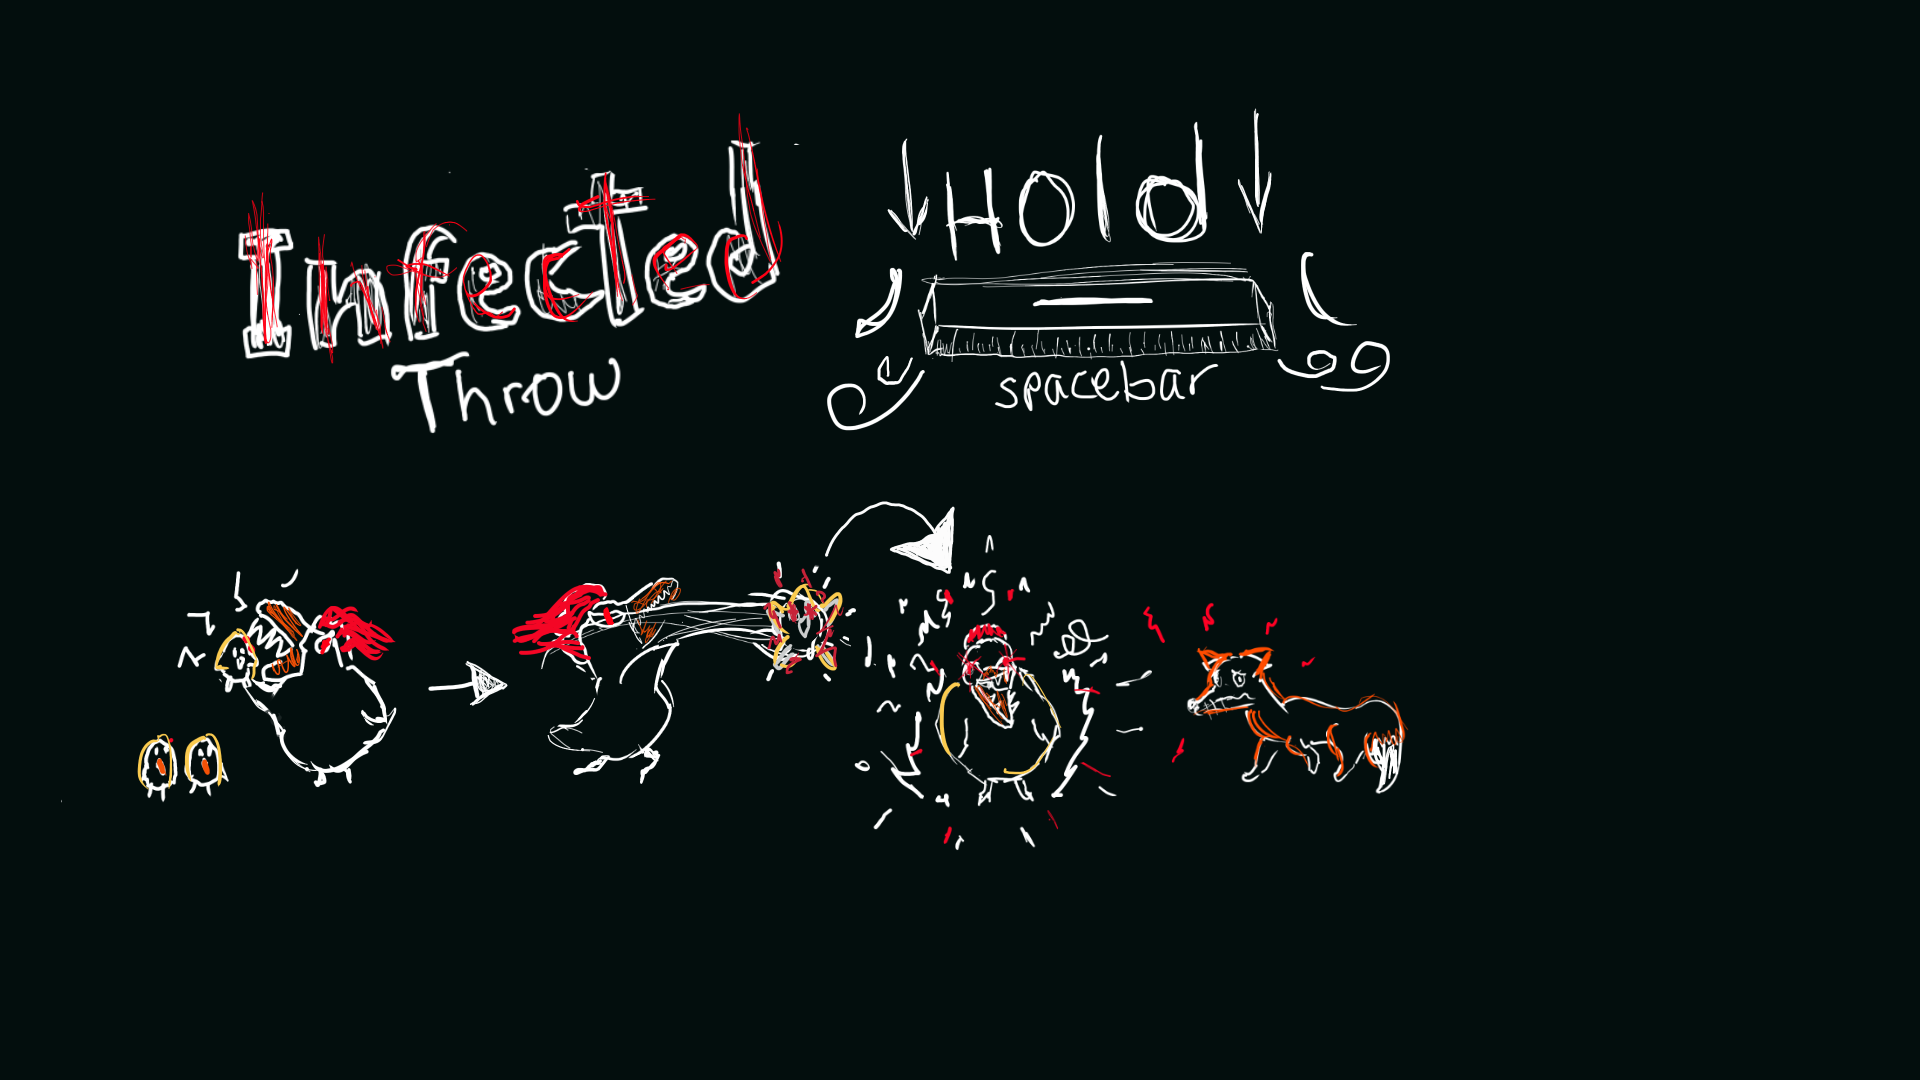 Infected
Throw
Hold
spacebar